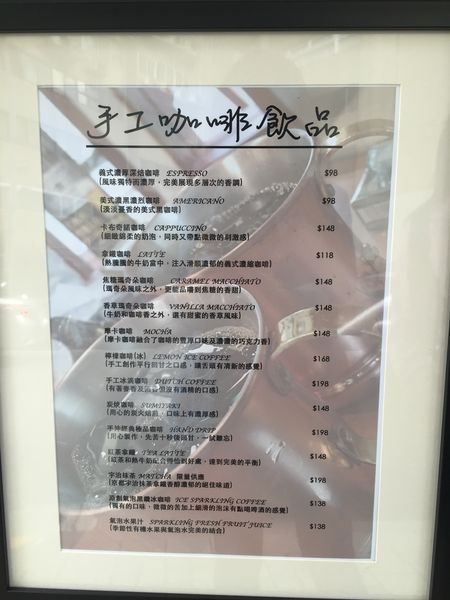 手工咖啡飲品
義式濃厚深焙咖啡 ESPRESSO $98
(風味獨特而濃厚，完美展現多層次的香調)
美式濃黑濃烈咖啡 AMERICANO $98
(淡淡薑香的美式黑咖啡)
卡布奇諾咖啡 CAPPUCCINO $148
(細緻綿柔的奶泡，同時又帶點微微的刺激感)
拿鐵咖啡 LATTE $118
(熱騰騰的牛奶當中，注入滑順濃郁的義式濃縮咖啡)
焦糖瑪奇朵咖啡 CARAMEL MACCHIATO $148
(瑪奇朵風味之外，更能品嚐到焦糖的香甜)
香草瑪奇朵咖啡 VANILLA MACCHIATO $148
(牛奶和咖啡香之外，還有甜蜜的香草風味)
摩卡咖啡 MOCHA $148
(摩卡咖啡融合了咖啡的豐厚口味及濃濃的巧克力香)
檸檬咖啡(冰) LEMON ICE COFFEE $168
(手工創作平行回甘之口感，讓舌頭有清新的感覺)
手工冰滴咖啡 DUTCH COFFEE $198
(有著麥香及酒香但沒有酒精的口感)
炭燒咖啡 SUMIYAKI $148
(用心的炭火焙煎，口味上有濃厚感)
手沖經典極品咖啡 HAND DRIP $198
(用心製作，先苦十秒後回甘，一試難忘)
紅茶拿鐵 TEA LATTE $148
(紅茶和熱牛奶配合得恰到好處，達到完美的平衡)
宇治抹茶 MATCHA 限量供應 $198
(京都宇治抹茶拿鐵香醇濃郁的絕佳味道)
原創氣泡黑鐵冰咖啡 ICE SPARKLING COFFEE $138
(獨有的口味，微微的苦加上細滑的泡沫有點喝啤酒的感覺)
氣泡水果汁 SPARKLING FRESH FRUIT JUICE $138
(季節性有機水果與氣泡水完美的結合)